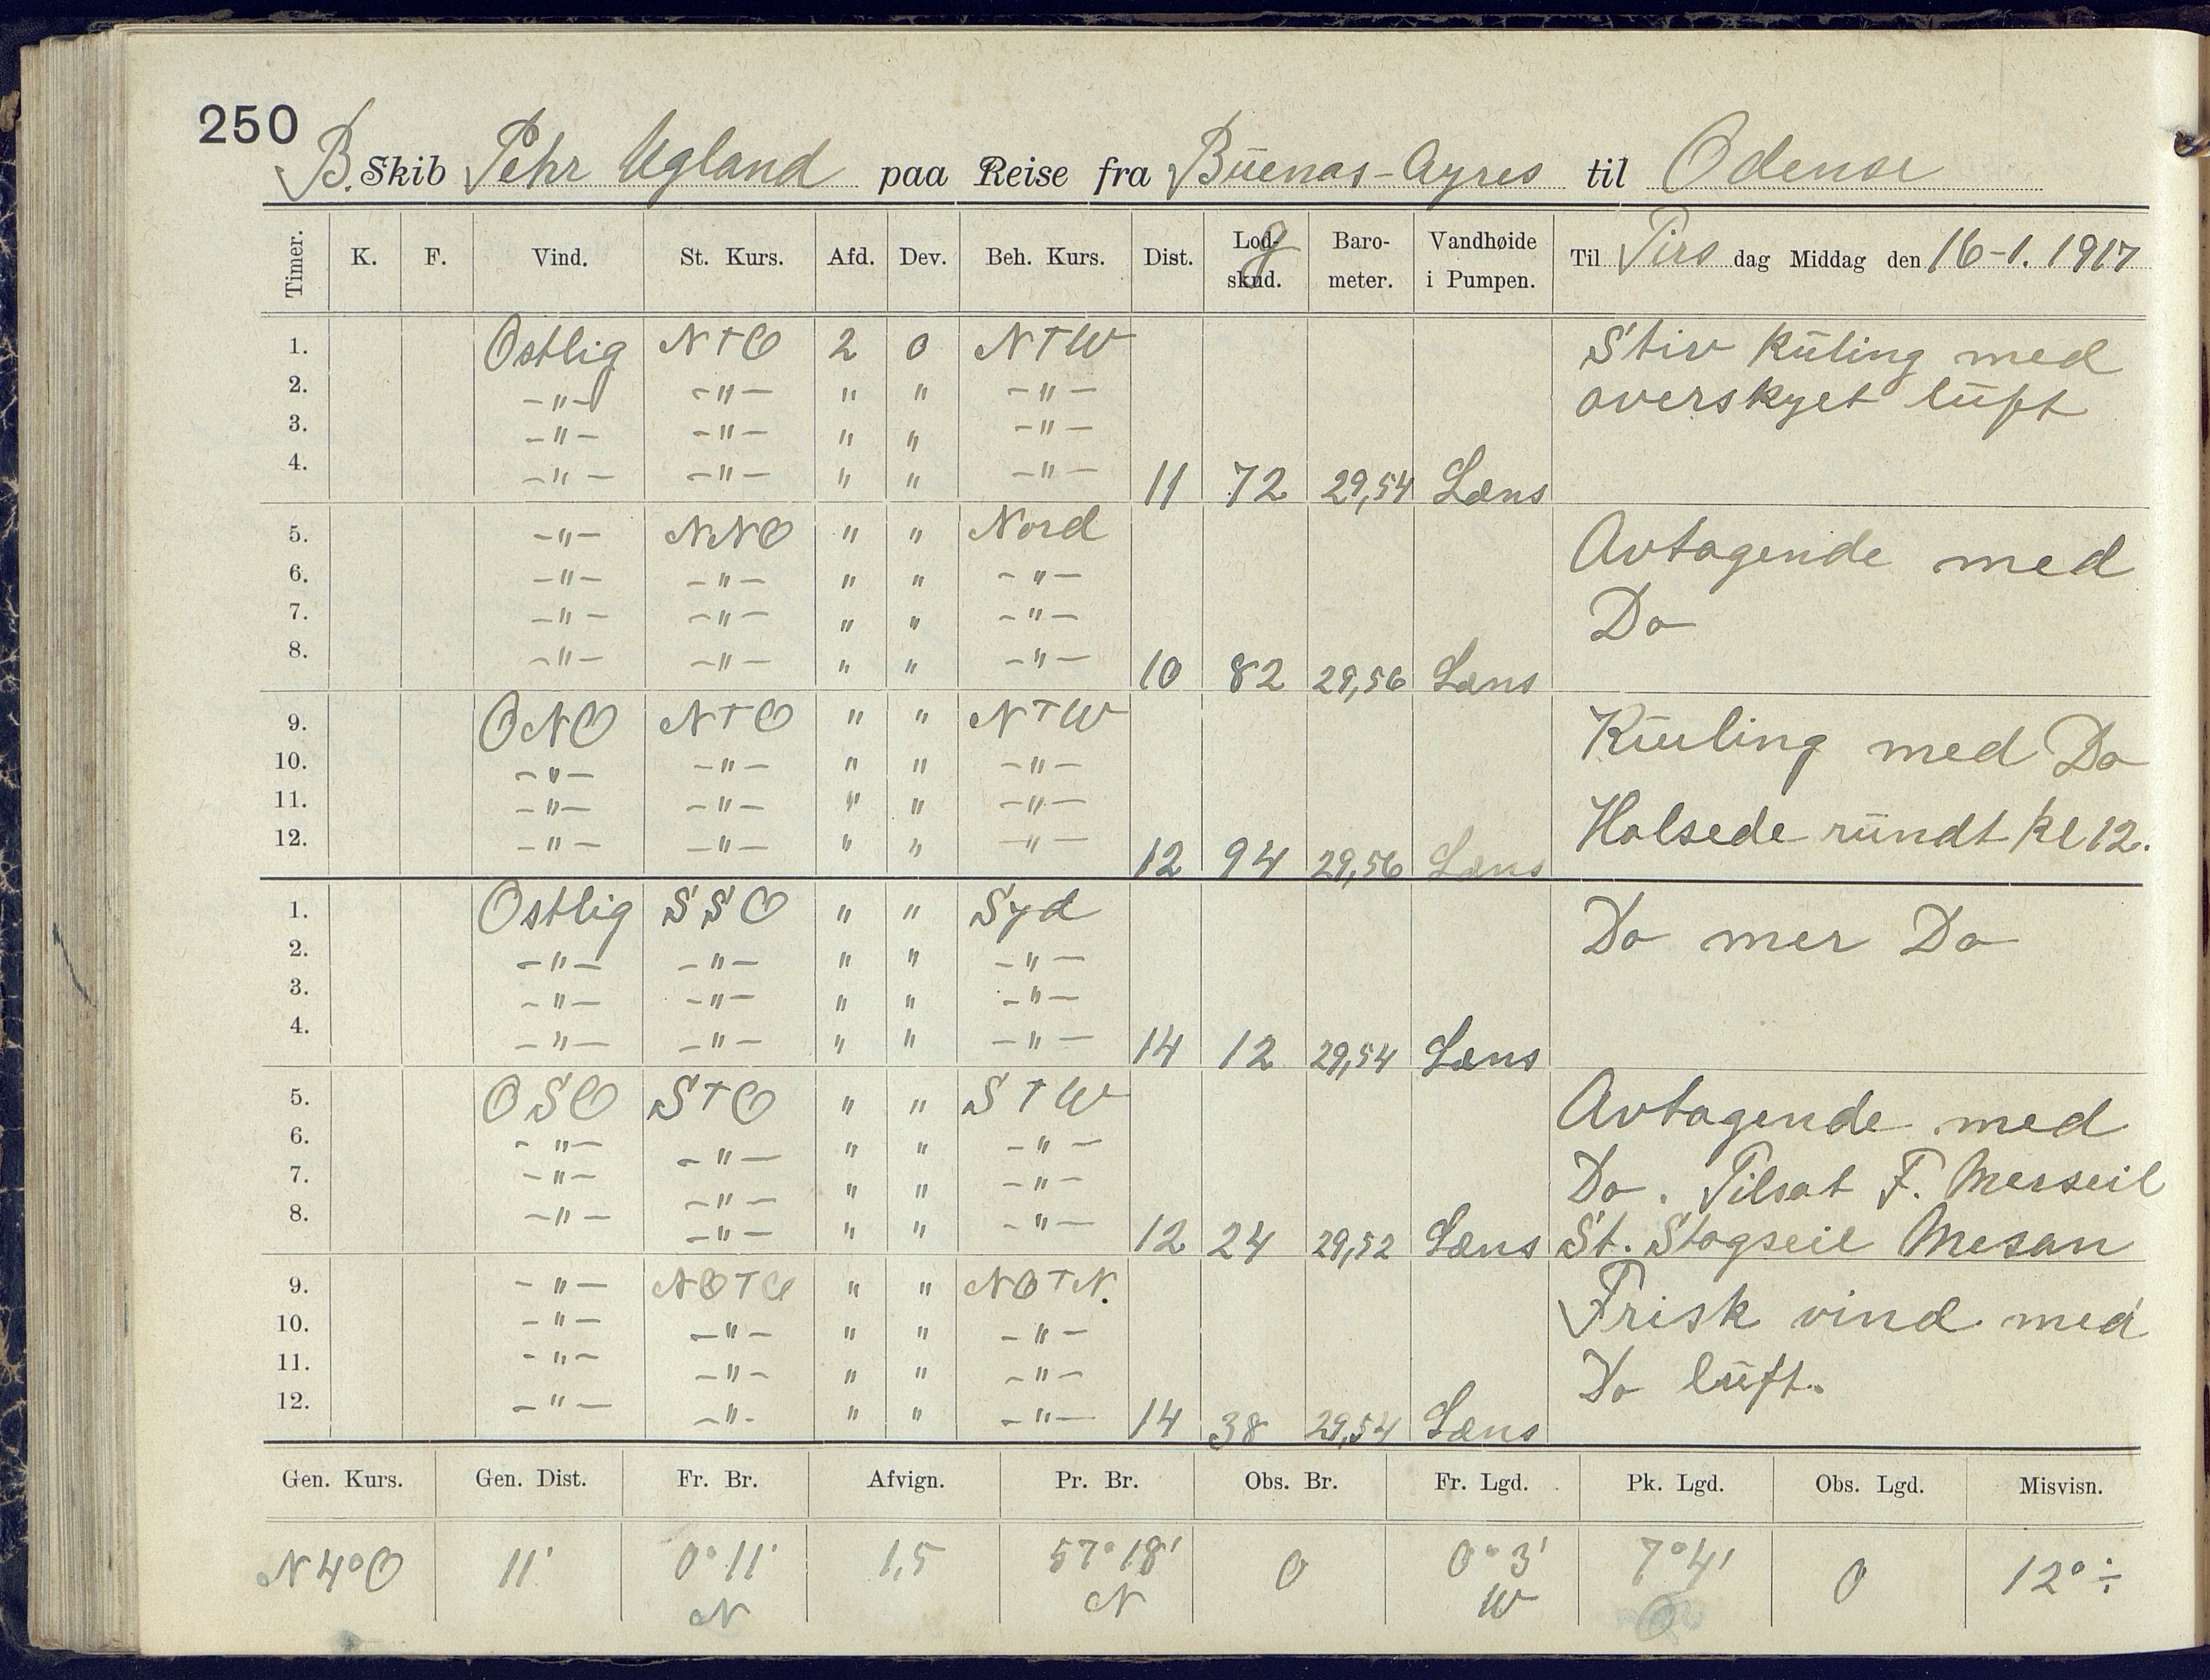 250
B. Skib Pehr Ugland paa Reise fra Buenas-Ayres til Odense
Timer. K. F. Vind. St. Kurs. Afd. Dev. Beh. Kurs. Dist. Log skud. Baro- meter. Vandhøide i Pumpen. Til Tirs dag Middag den 16-1. 1917
1. Ostlig NTO 2 0 NTW Stiv Kūling med
2. -"- -"- " " -"- overskyet lūft
3. -"- -"- " " -"-
4. -"- -"- " " -"- 11 72 29,54 Læns
5. -"- NNO " " Nord Avtagende med
6. -"- -"- " " -"-
7. -"- -"- " " -"- Do
8. -"- -"- " " -"- 10 82 29,56 Læns
9. ONO NTO " " NTW Kūling med Do
10. -"- -"- " " -"-
11. -"- -"- " " -"- Halsede rūndt kl 12.
12. -"- -"- " " -"- 12 94 29,56 Læns
1. Ostlig SSO " " Syd Do mer Do
2. -"- -"- " " -"-
3. -"- -"- " " -"-
4. -"- -"- " " -"- 14 12 29,54 Læns
5. OSO STO " " STW Avtagende med
6. -"- -"- " " -"-
7. -"- -"- " " -"- Do. Tilsat F. Merseil
8. -"- -"- " " -"- 12 24 29,52 Læns St. Stagseil Mesan
9. -"- NOTO " " NOTN. Frisk vind med
10. -"- -"- " " -"-
11. -"- -"- " " -"- Do lūft.
12. -"- -"- " " -"- 14 38 29,54 Læns
Gen. Kurs. Gen. Dist. Fr. Br. Afvign. Pr. Br. Obs. Br. Fr. Lgd. Pk. Lgd. Obs. Lgd. Misvisn.
N4°O 11' 0°11' 1,5 57°18' 0 0°3' 7°4' 0 12° ÷
N N W O